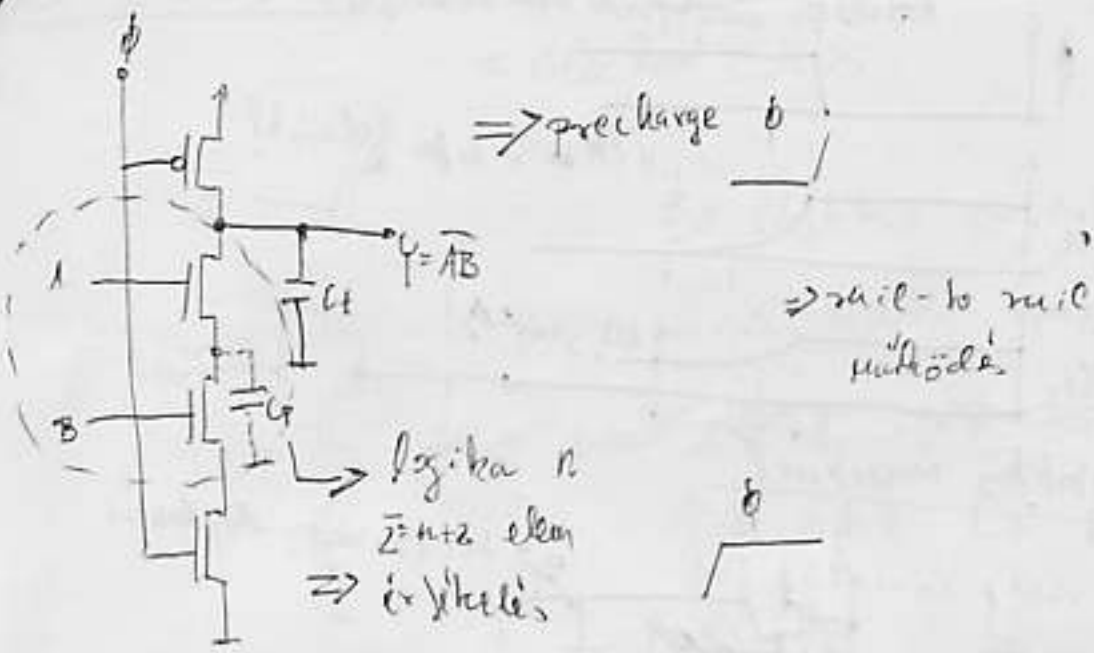 ϕ
⇒ precharge ϕ
A
Y = \overline{AB}
Ct
⇒ rail-to rail
működés
B
Cp
logika n
Σ=n+2 elem
⇒ értékelés
ϕ